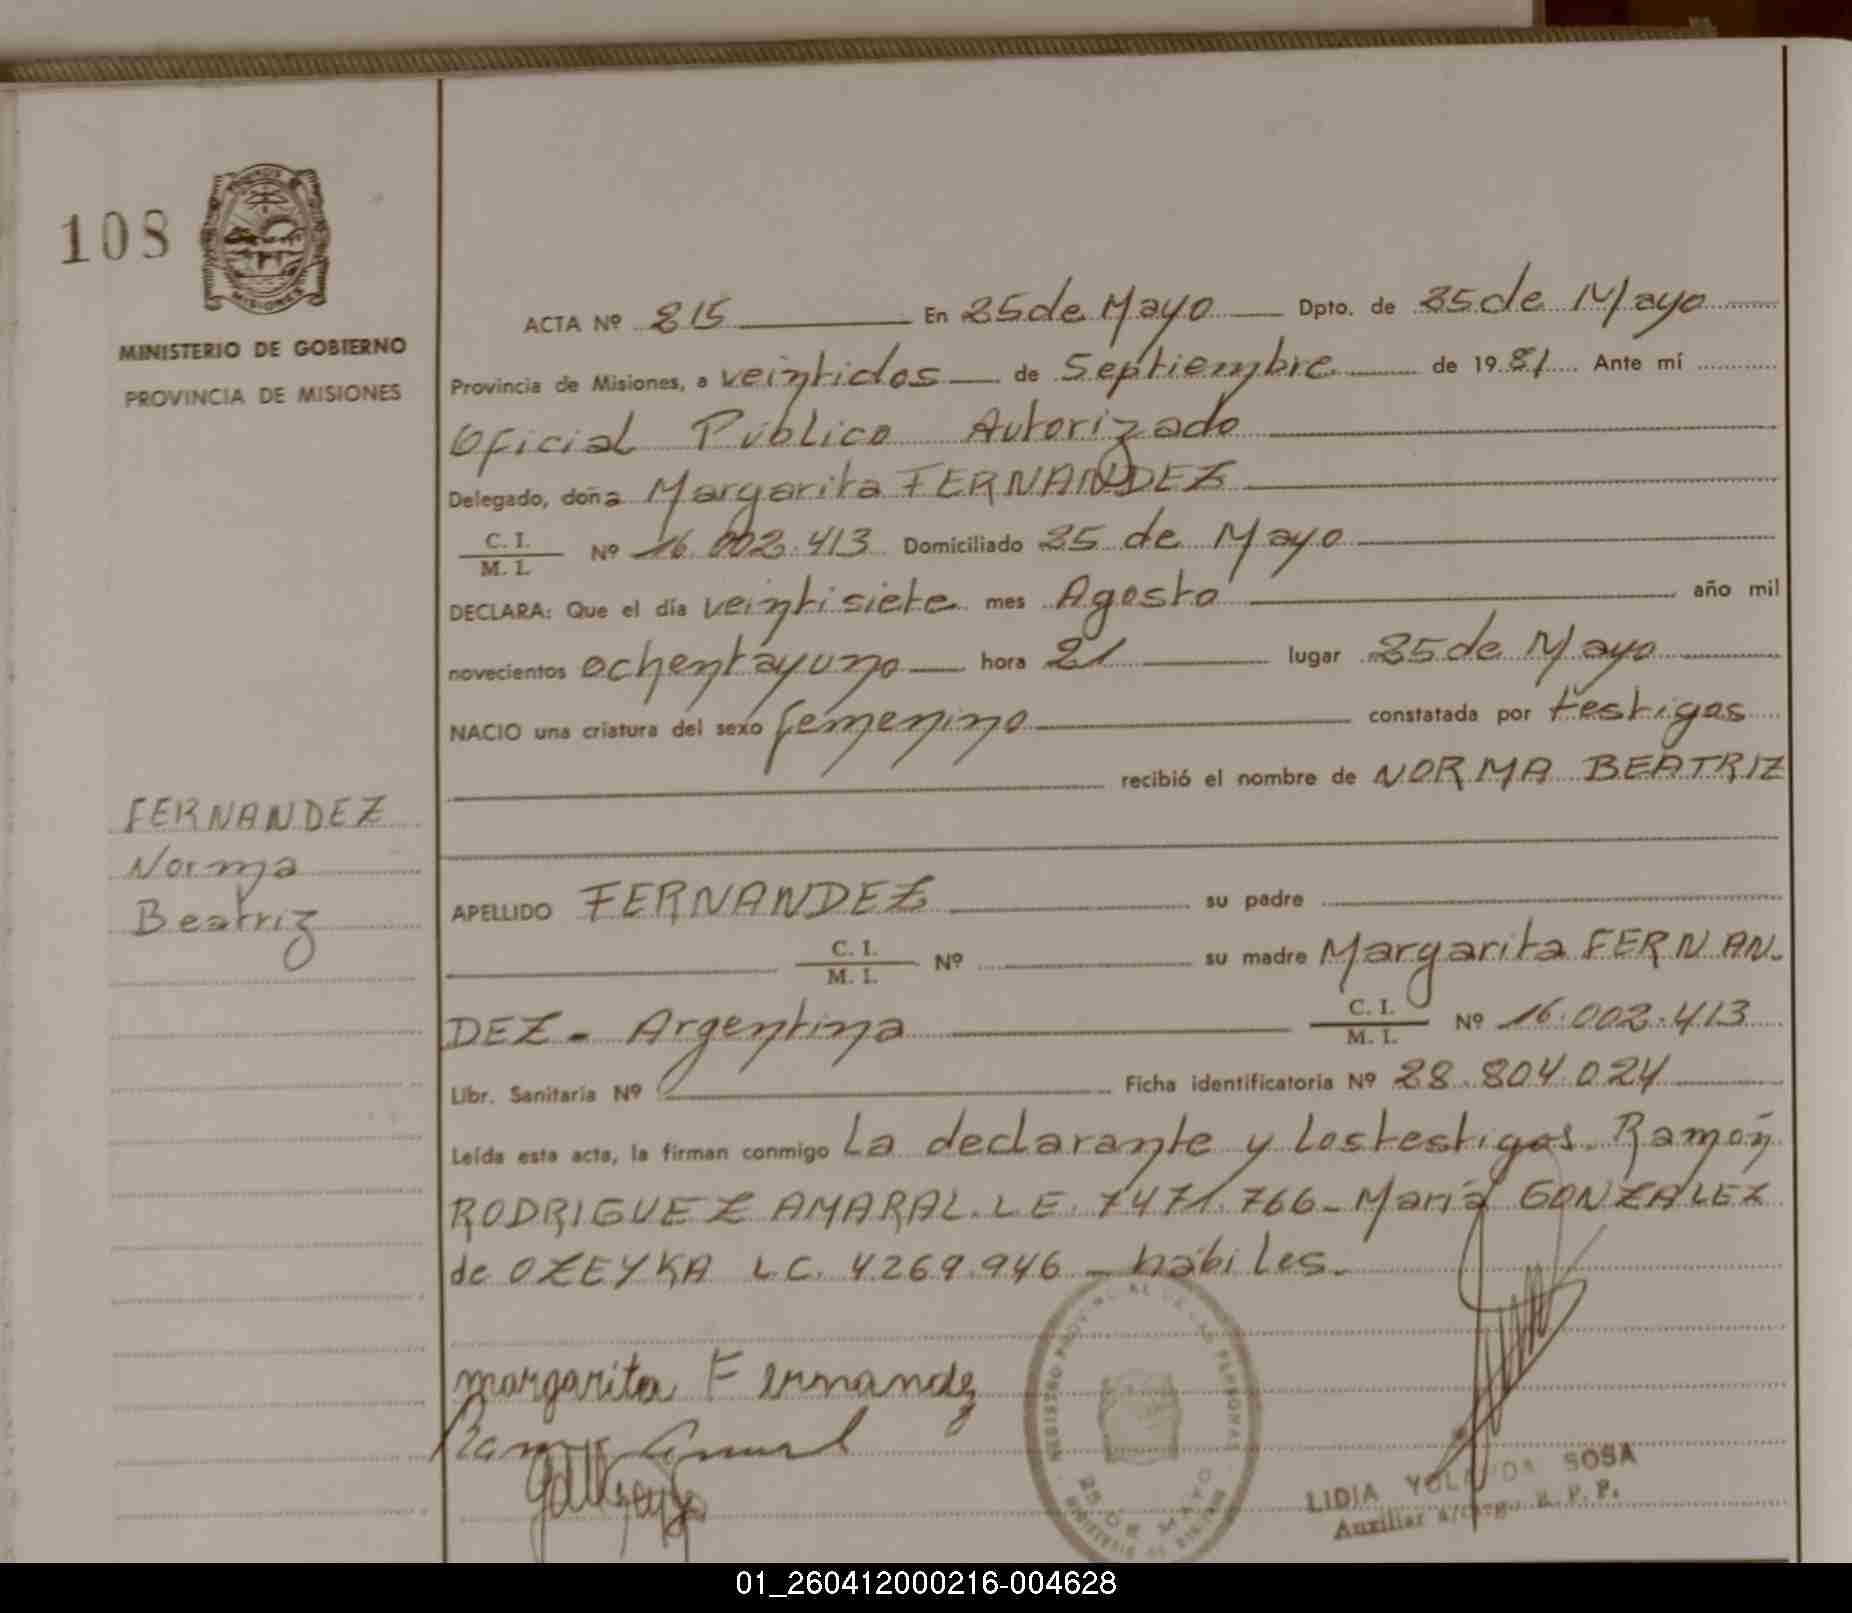 108
MISIONES
MINISTERIO DE GOBIERNO
PROVINCIA DE MISIONES
ACTA Nº 815 En 25 de Mayo Dpto. de 25 de Mayo
Provincia de Misiones, a veintidos de Septiembre de 1981 Ante mí
Oficial Público Autorizado
Delegado, doña Margarita FERNANDEZ
C. I. / M. I. Nº 16.002.413 Domiciliado 25 de Mayo
DECLARA: Que el día veintisiete mes Agosto año mil
novecientos ochentayuno hora 21 lugar 25 de Mayo
NACIO una criatura del sexo femenino constatada por testigos
recibió el nombre de NORMA BEATRIZ
FERNANDEZ
Norma
Beatriz
APELLIDO FERNANDEZ su padre
C. I. / M. I. Nº su madre Margarita FERNAN-
DEZ - Argentina C. I. / M. I. Nº 16.002.413
Libr. Sanitaria Nº Ficha identificatoria Nº 28.804.024
Leída esta acta, la firman conmigo La declarante y los testigos. Ramón
RODRIGUEZ AMARAL. L.E. 7471.766 - María GONZALEZ
de OZEYKA L.C. 4.269.946 - hábiles.
margarita Fernandez
REGISTRO PROVINCIAL DE LAS PERSONAS
25 DE MAYO
LIDIA YOLANDA SOSA
Auxiliar a/cargo R. P. P.
01_260412000216-004628